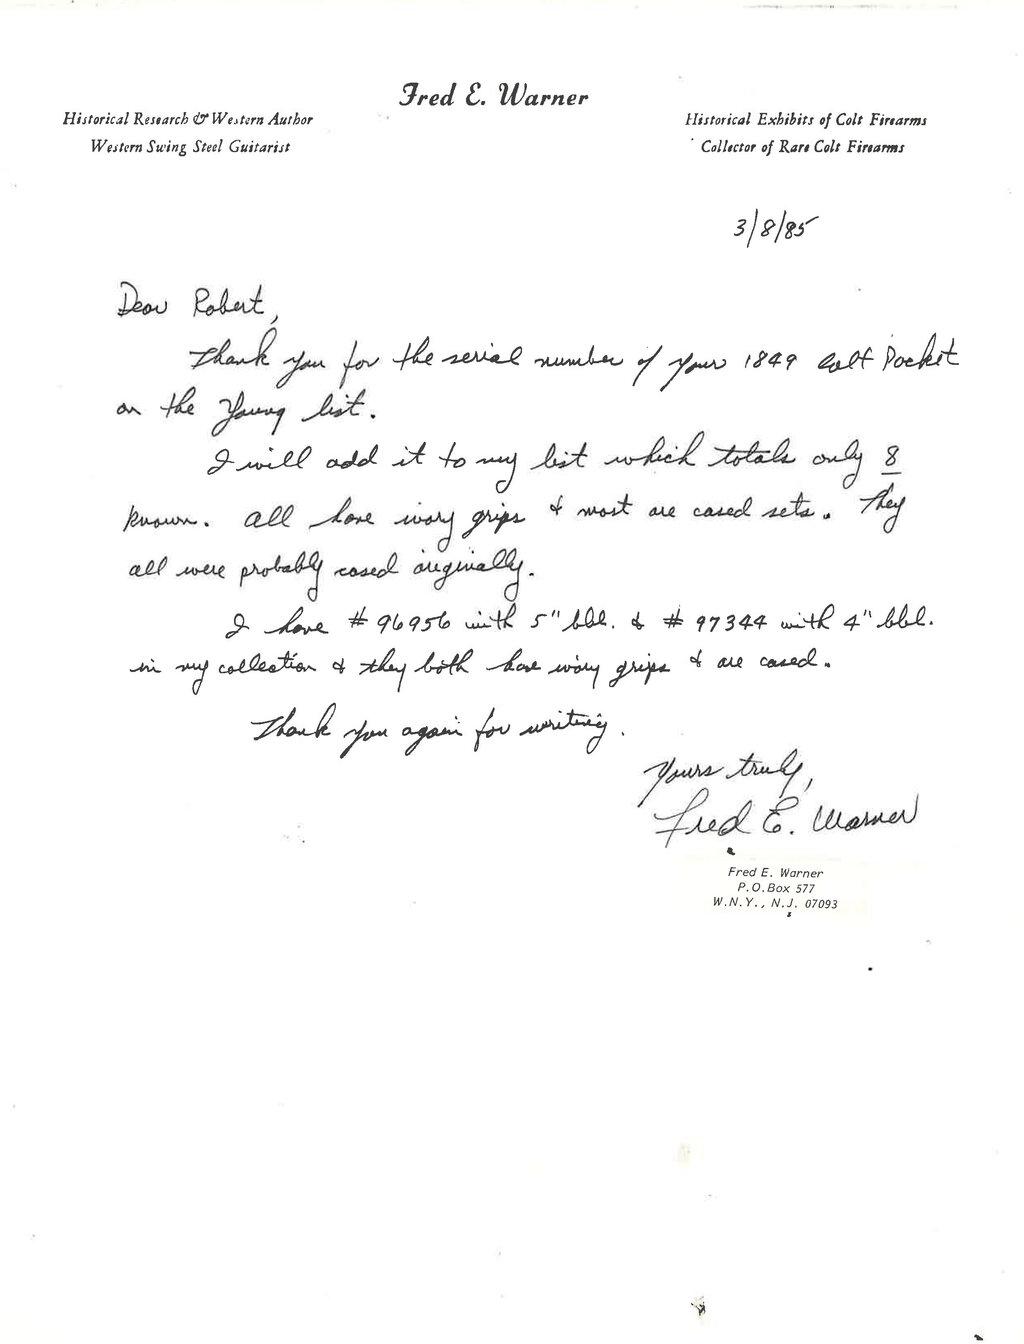 Fred E. Warner
Historical Research & Western Author
Western Swing Steel Guitarist
Historical Exhibits of Colt Firearms
Collector of Rare Colt Firearms
3/8/85
Dear Robert,
Thank you for the serial number of your 1849 Colt Pocket
on the Young list.
I will add it to my list which totals only 8
known. All have ivory grips & most are cased sets. They
all were probably cased originally.
I have # 96956 with 5" bbl. & # 97344 with 4" bbl.
in my collection & they both have ivory grips & are cased.
Thank you again for writing.
Yours truly,
Fred E. Warner
Fred E. Warner
P.O.Box 577
W.N.Y., N.J. 07093